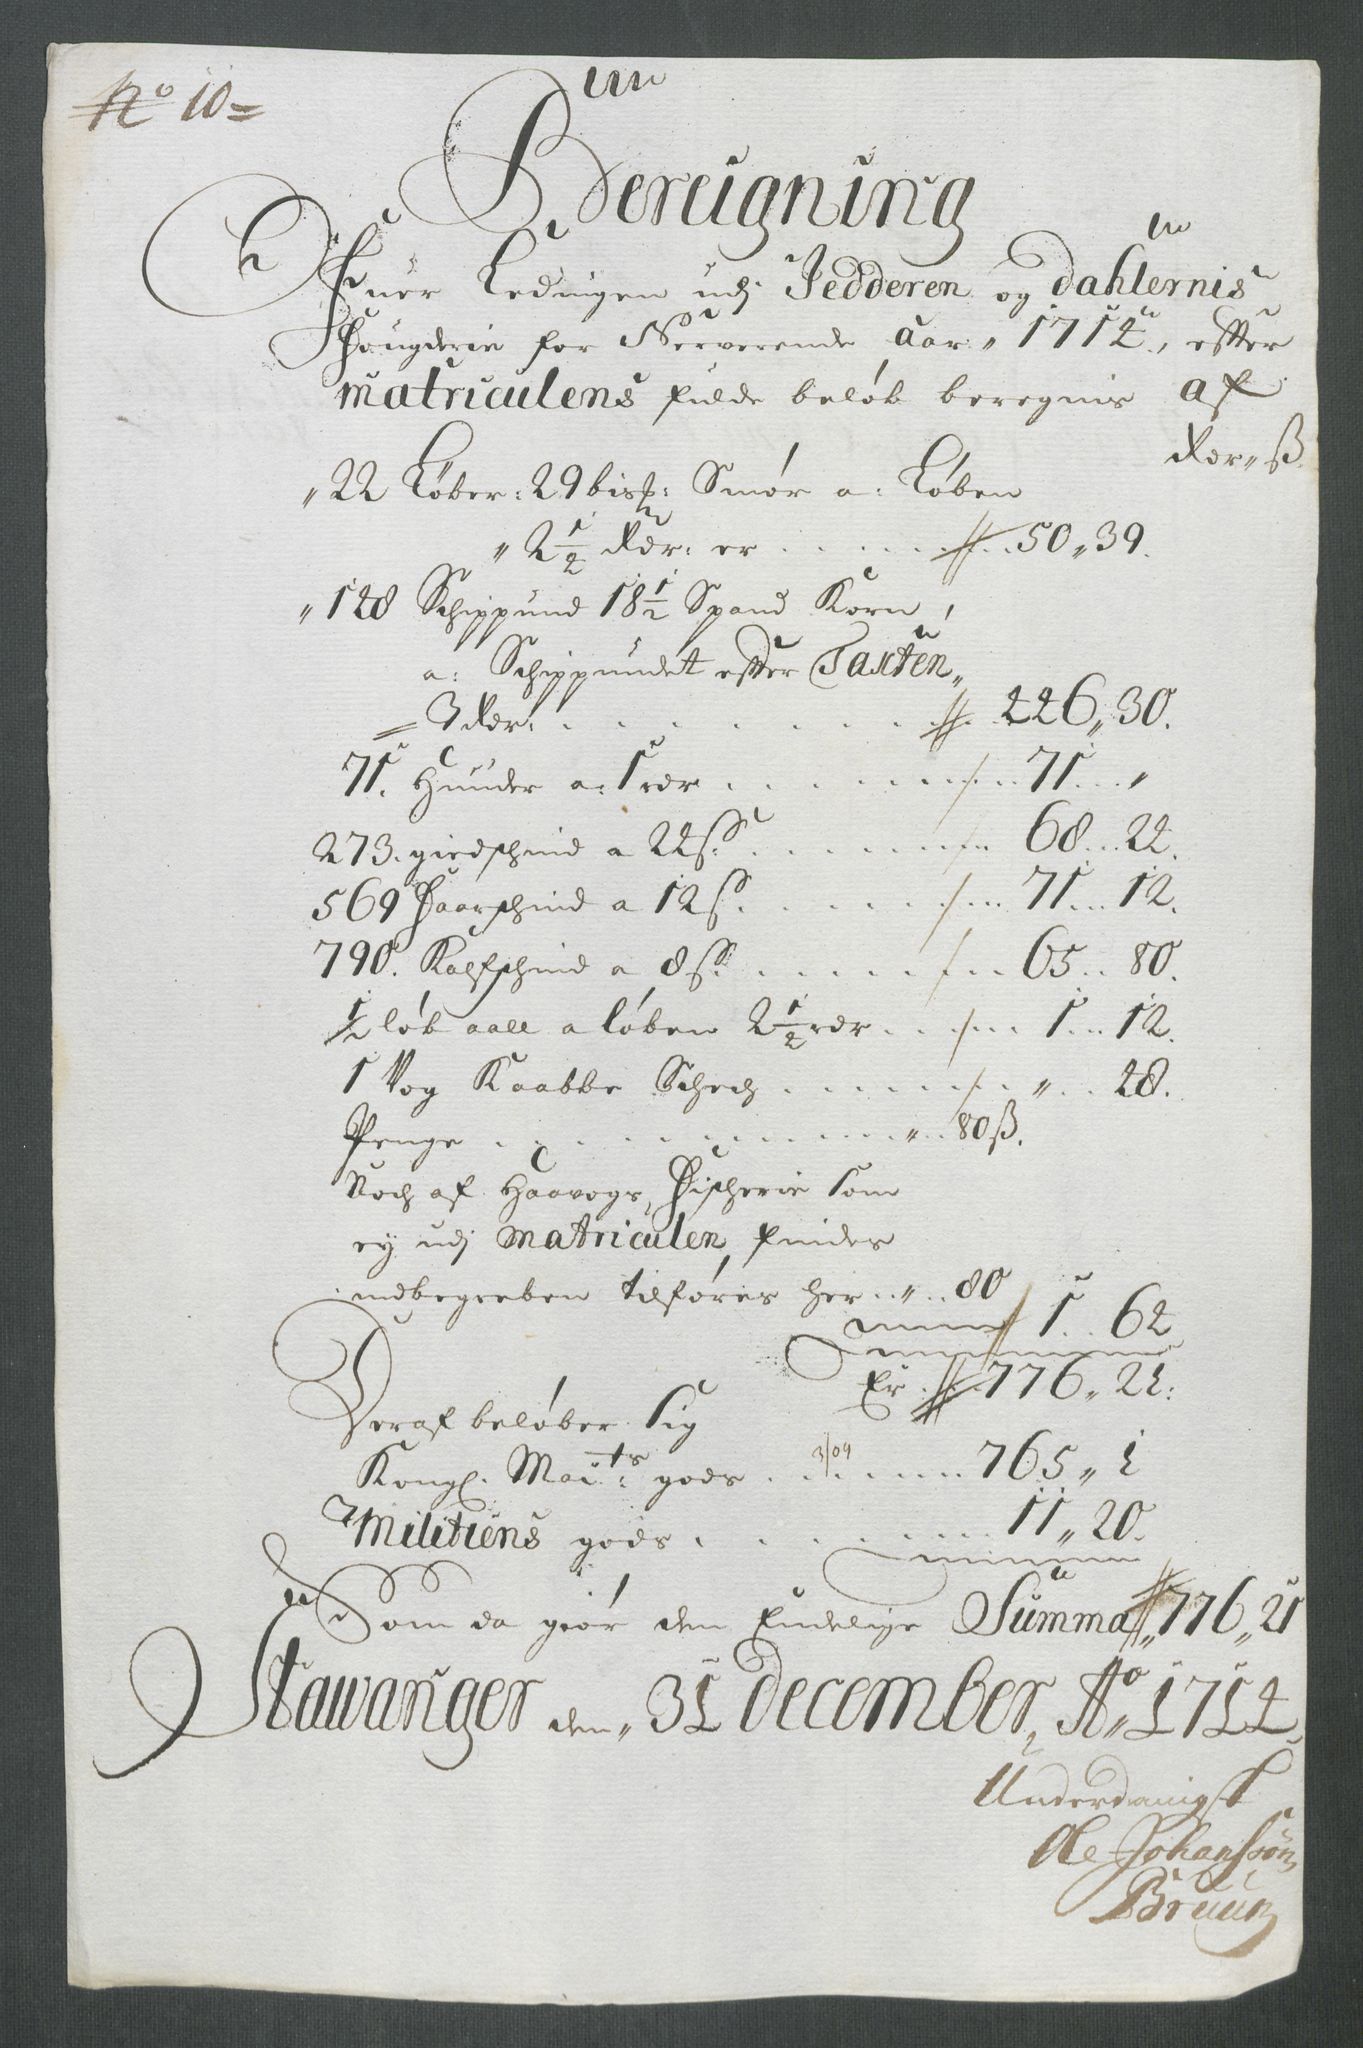 No 10=
Bereigning
Ofuer Ledingen udj Jedderen og Dahlernis
Fougderie for Nerverende Aar 1714, effter
Matriculens fulde beløb beregnis af
Rdr ß
22 Løber: 29 bisp: Smør a: Løben
2½ Rdr: er . . . 50 39.
148 Schippund 18½ Spand Korn
a: Schippundet effter Taxten
3 Rdr: . . . 446 30.
71. Huuder a: 1 rdr . . . 71 . . "
273. giedschind a 24 ß: . . . 68 . . 24.
569 Faarschind a 12 ß. . . . 71 . . 12.
790. Kalfschind a 8 ß. . . . 65 . . 80.
½ løb aall a løben 2½ rdr . . . 1 . . 12.
1 Vog Kaabbe . . . " . . 48.
Penge . . . " . . 80 ß.
Noch af Haavogs Fischerie som
ej udj Matriculen findes
indbegreben tilføres her . . " . . 80
1 . . 64
Er . . 776 21:
Deraf beløber sig
Kongl. Maits: gods . . 3/09 . . . 765 1
Militiens gods . . . 11 20.
Som da giør den Endelige Summa 776 21
Stawanger den 31 December Ao 1714
Underdanigst
Ole Johanssøn
Bruun